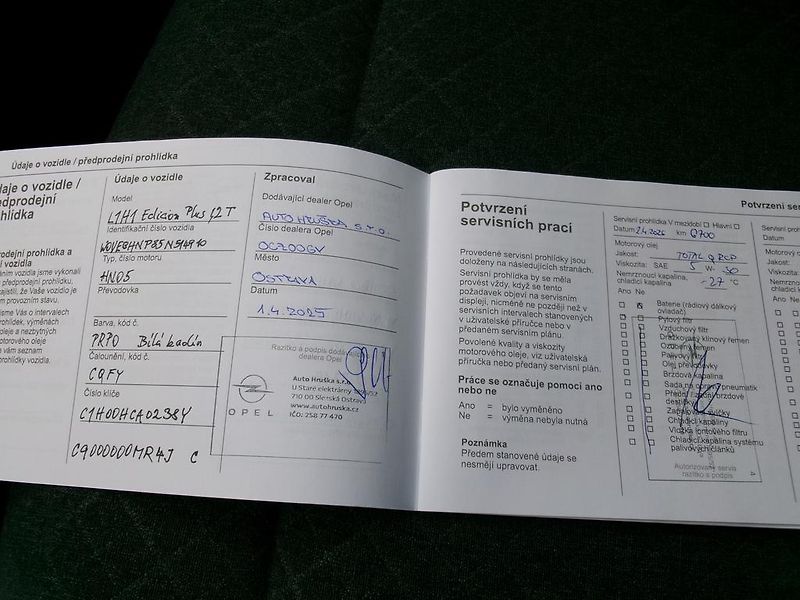 Údaje o vozidle / předprodejní prohlídka
daje o vozidle /
edprodejní
hlídka
odejní prohlídka a
jsme Vás o intervalech
ohlídek, výměnách
oleje a nezbytných
motorového oleje
Vám seznam
hlídky vozidla.
Údaje o vozidle
Model
L1H1 Edition Plus 1,2 T
Identifikační číslo vozidla
Typ, číslo motoru
HN05
Převodovka
Barva, kód č.
PRP0 Bílá
Čalounění, kód č.
CQFY
Číslo klíče
C1H00HCA0238Y
C9000000MR4J C
Zpracoval
Dodávající dealer Opel
AUTO HRUŠKA s.r.o.
Číslo dealera Opel
Město
OSTRAVA
Datum
1.4.2025
Razítko a podpis dodávajícího
dealera Opel
OPEL
Auto Hruška s.r.o.
U Staré elektrárny
710 00 Slezská Ostrava
www.autohruska.cz
IČO: 258 77 470
Potvrzení
servisních prací
Provedené servisní prohlídky jsou
doloženy na následujících stránách.
Servisní prohlídka by se měla
provést vždy, když se tento
požadavek objeví na servisním
displeji, nicméně ne později než v
servisních intervalech stanovených
v uživatelské příručce nebo v
předaném servisním plánu.
Povolené kvality a viskozity
motorového oleje, viz uživatelská
příručka nebo předaný servisní plán.
Práce se označuje pomocí ano
nebo ne
Ano = bylo vyměněno
Ne = výměna nebyla nutná
Poznámka
Předem stanovené údaje se
nesmějí upravovat.
Potvrzení ser
Servisní prohlídka V mezidobí Hlavní
Datum 2.4.2026 km
Motorový olej
Jakost: TOTAL
Viskozita: SAE 5 W- 30
Nemrznoucí kapalina,
chladicí kapalina -27 °C
Ano Ne
Baterie (rádiový dálkový
ovladač)
Pylový filtr
Vzduchový filtr
Drážkovaný klínový řemen
Ozubený řemen
Palivový filtr
Olej převodovky
Brzdová kapalina
Sada na opravu pneumatik
Přední / zadní brzdové
destičky
Zapalovací svíčky
Chladicí kapaliny
Vložka iontového filtru
Chladicí kapalina systému
palivových článků
Autorizovaný servis
razítko a podpis
4
Servisní proh
Datum
Motorový
Jakost:
Viskozita:
Nemrznou
chladicí ka
Ano Ne